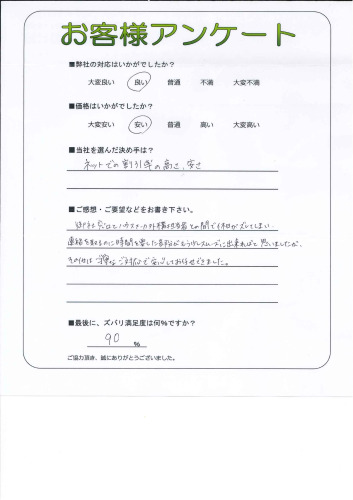 お客様アンケート
■弊社の対応はいかがでしたか?
大変良い 良い 普通 不満 大変不満
■価格はいかがでしたか?
大変安い 安い 普通 高い 大変高い
■当社を選んだ決め手は?
ネットでの割引率の高さ、安さ
■ご感想・ご要望などをお書き下さい。
との間で休日がズレてしまい、
連絡を取るのに時間を要した為もう少しスムーズに出来ればと思いましたが、
その他は丁寧なご対応で安心してお任せできました。
■最後に、ズバリ満足度は何%ですか?
90 %
ご協力頂き、誠にありがとうございました。